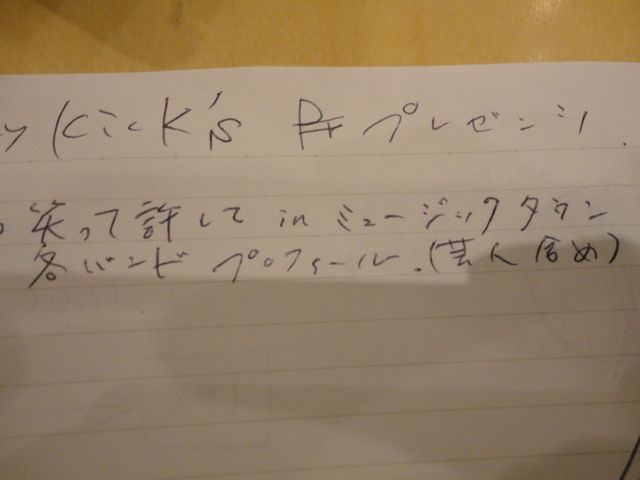 y Kick's PF プレゼンツ.
笑って許して in ミュージックタウン
各バンド プロフィール.(芸人含め)